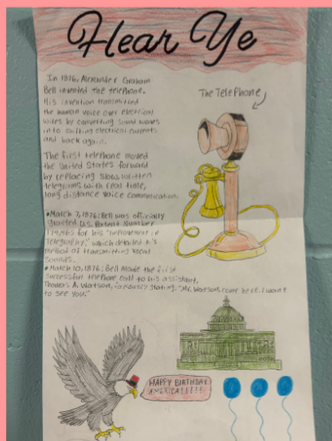 Hear Ye
In 1876, Alexander Graham
Bell invented the telephone.
His invention transmitted
the human voice over electrical
wires by converting sound waves
into shifting electrical currents
and back again.
The Telephone
The first telephone moved
the United States forward
by replacing slow, written
telegrams with real time,
long distance voice communication.
•March 7, 1876: Bell was officially
granted U.S. Patent Number
174,465 for his "improvement in
Telegraphy," which detailed his
method of transmitting vocal
sounds.
•March 10, 1876: Bell made the first
successful telephone call to his assistant,
Thomas A. Watson, famously stating: "Mr. Watson, come here. I want
to see you."
HAPPY BIRTHDAY